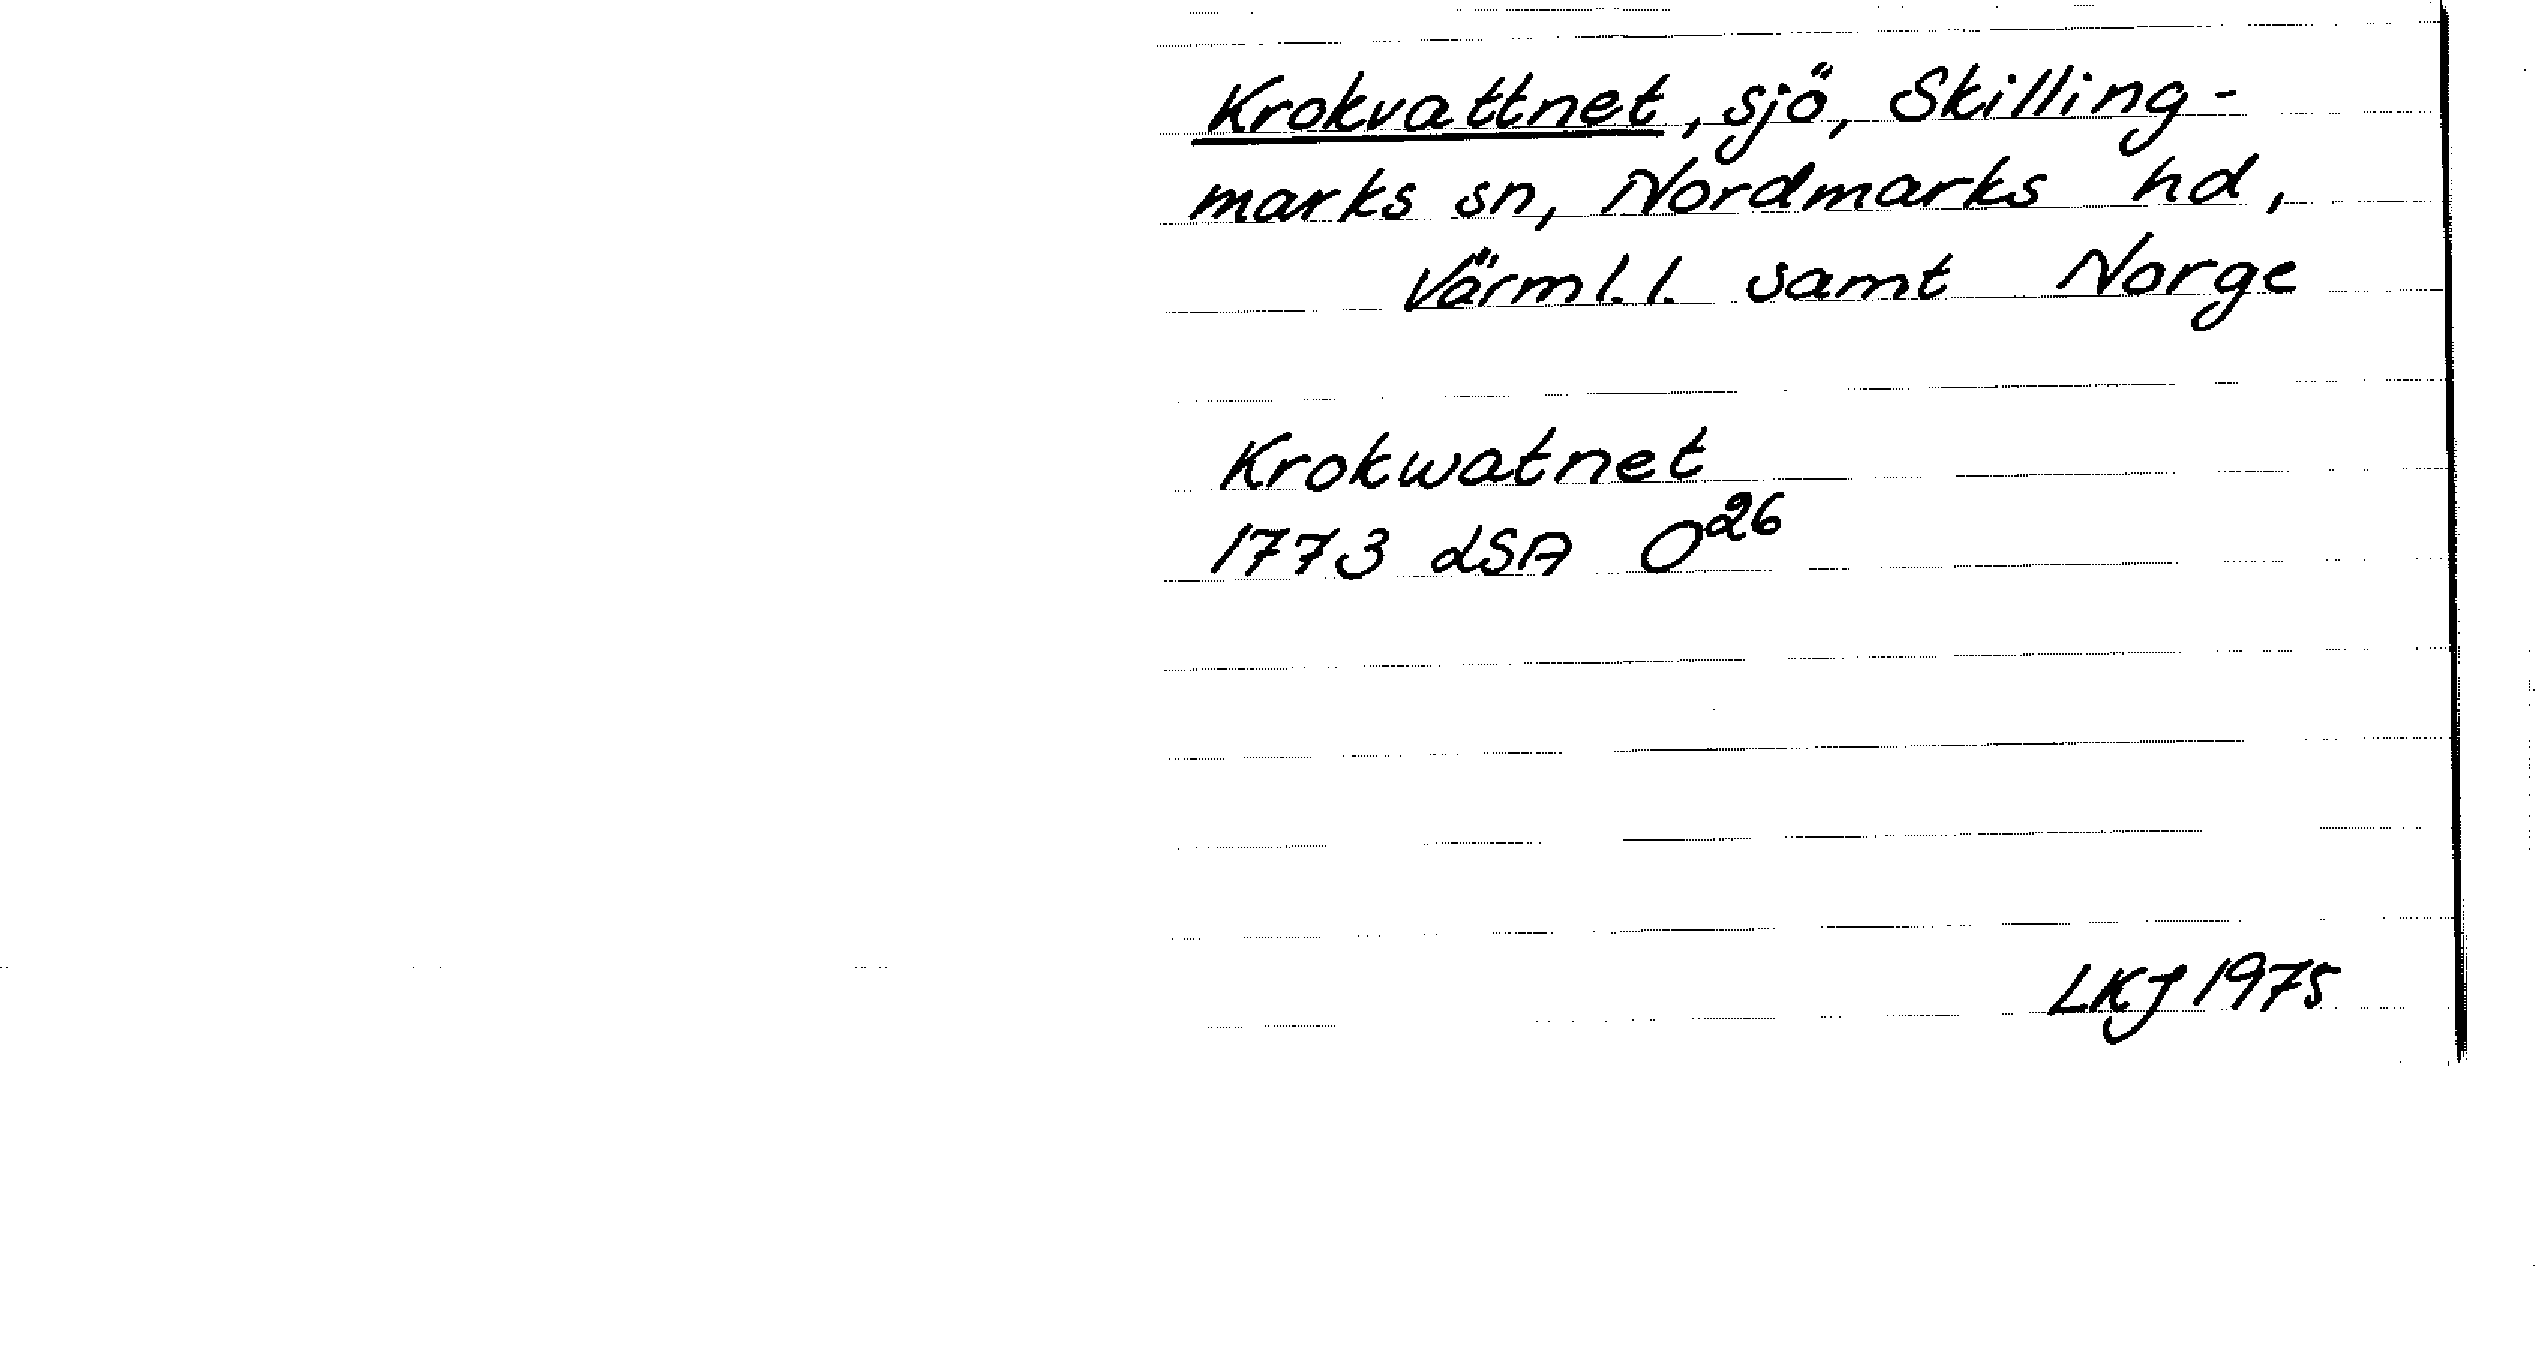 Krokvattnet, sjö, Skilling-
marks sn, Nordmarks hd,
Värml.l. samt Norge
Krokwatnet
1773 LSA O²⁶
LKJ 1975